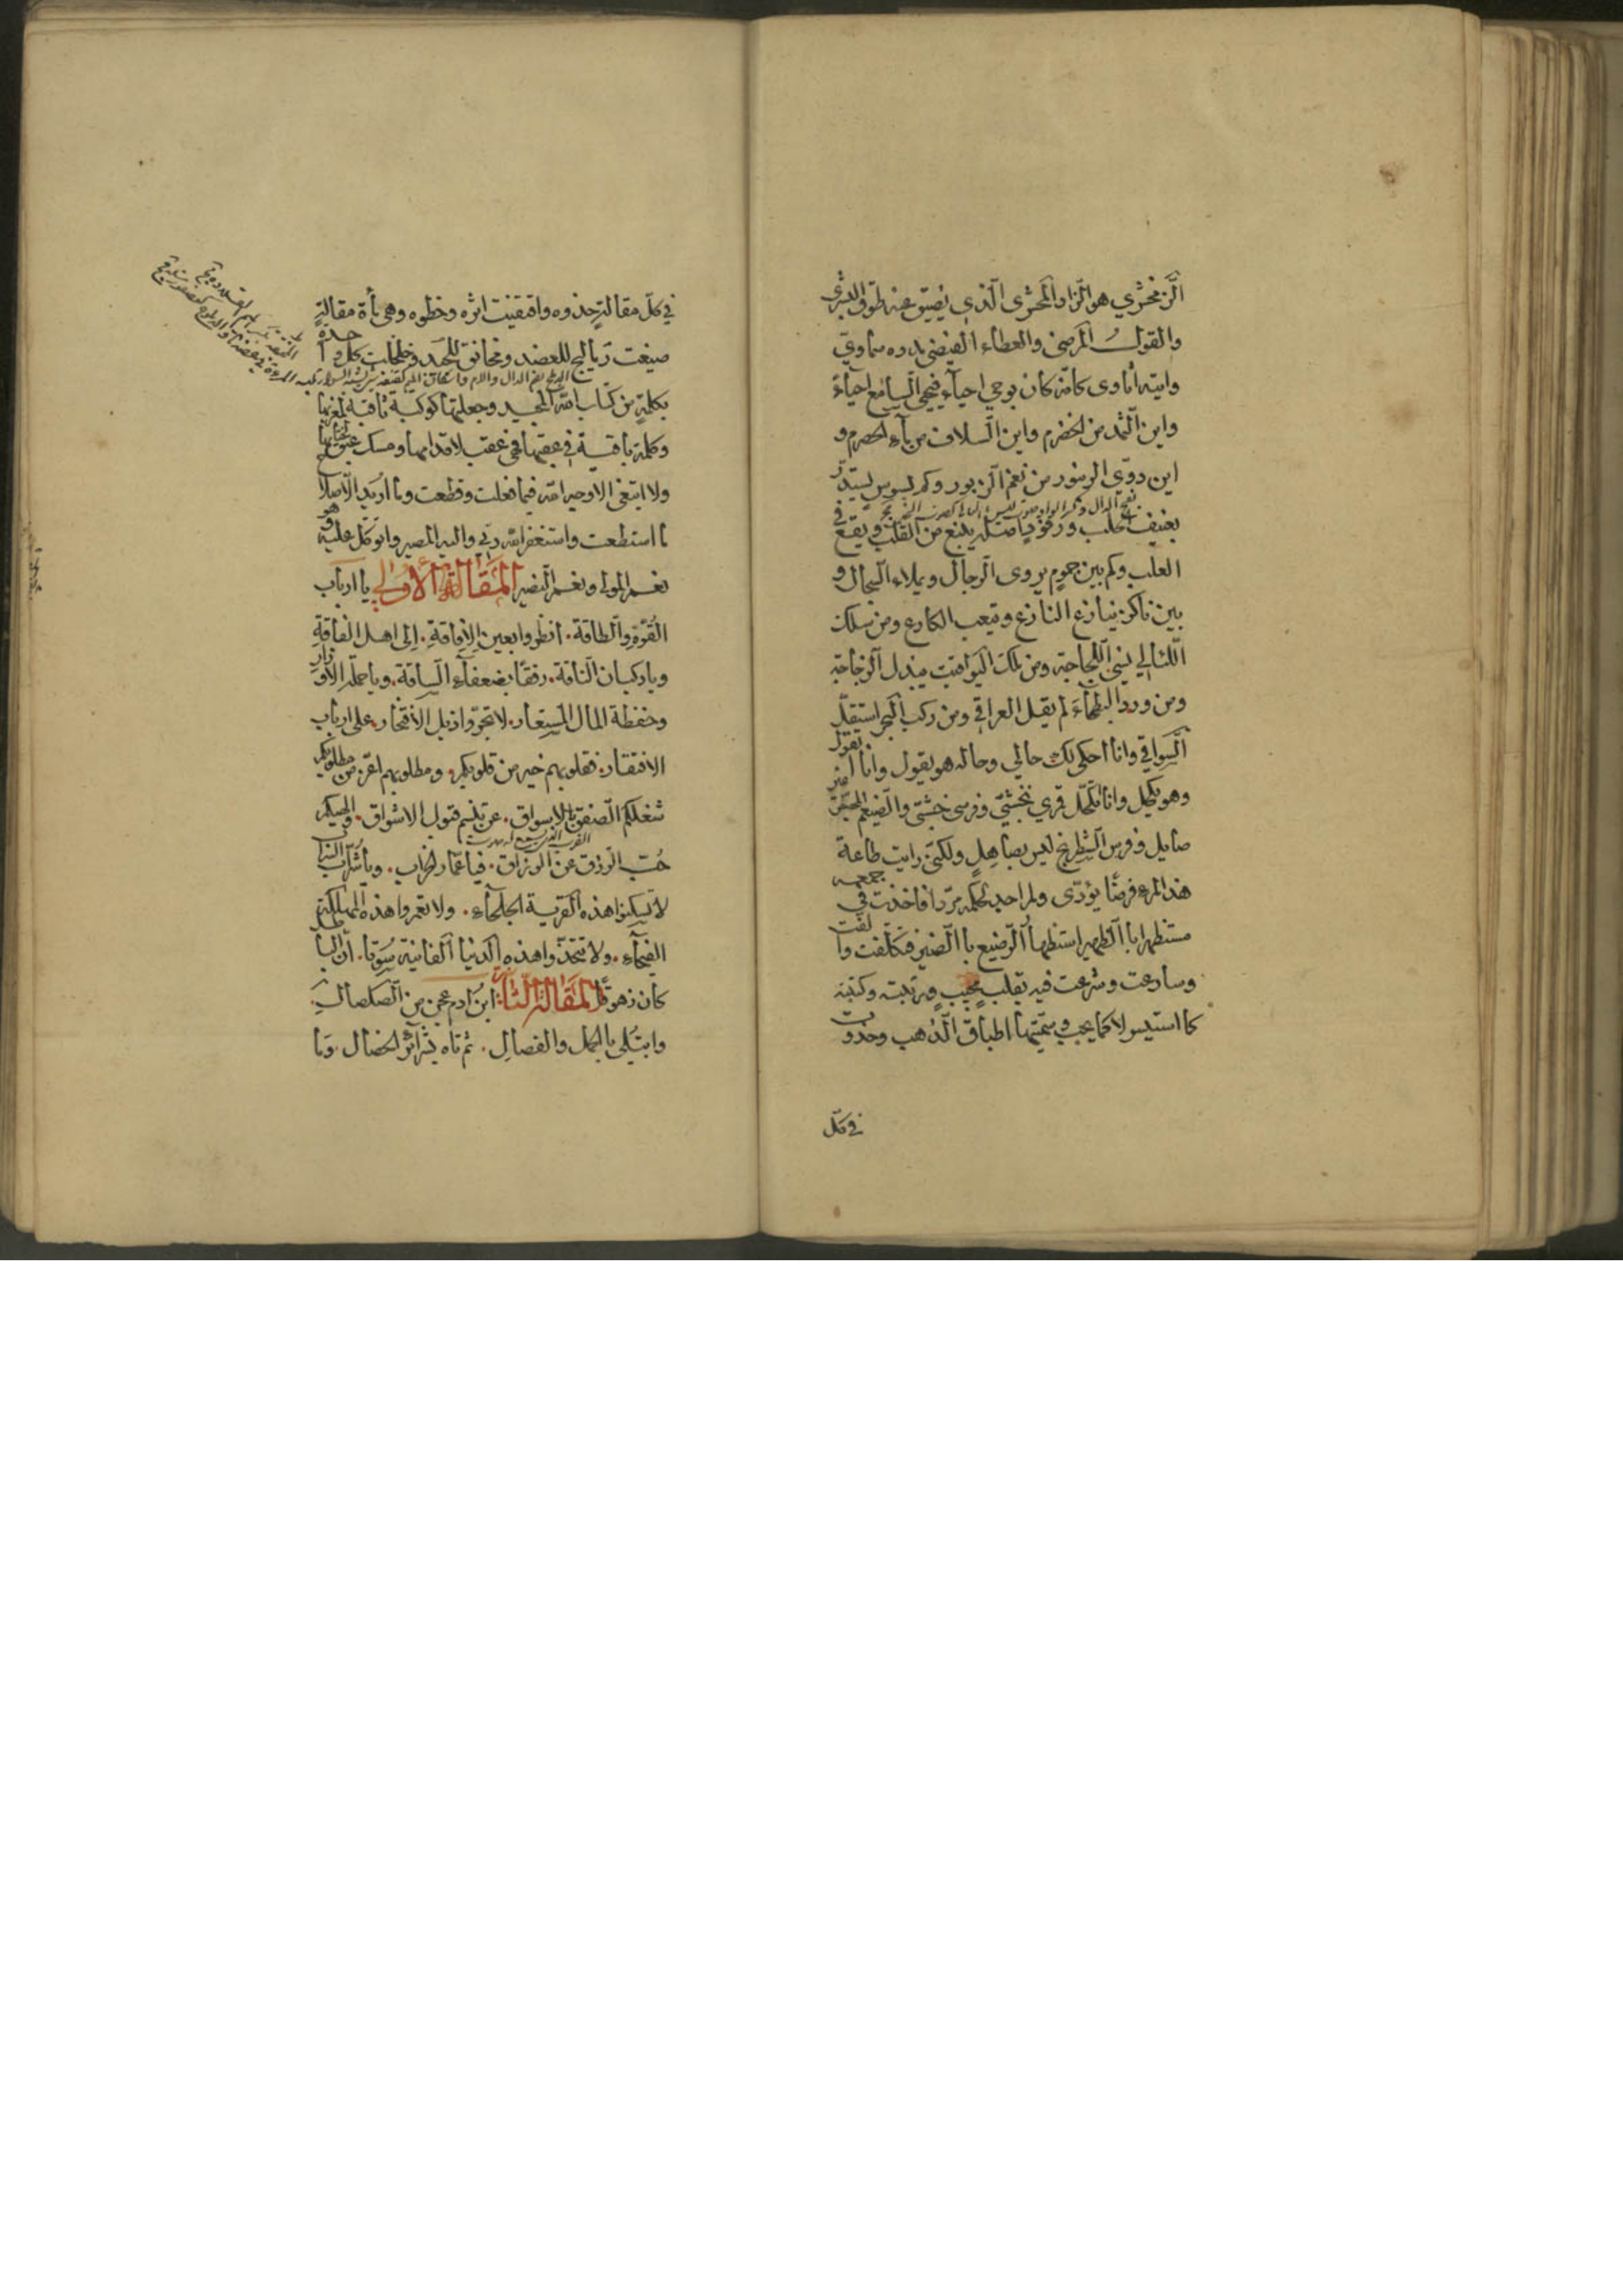 الزمخشري هو الزاد المحشرى الذي يضيق عنه طوق البشرى
والقول المرضى والعطاء الفيضى بدوه سماوي
وايته اناوى كانه كان يوحي احياء فيحيى السامع احياء
واين الثمد من الخضرم واين السلاف من ماء الحصرم و
اين دوى الزنبور من نغم الزبور وكم بسوس يستدر
بعنيف الحلب ورفود يبلغ من القلب ويقع في
العلب وكم بين جموم يروى الرجال ويملاء السجال و
بين ناكز ينازع النازع ويتعب الكارع ومن سلك
اللئالي نسي اللجاجة ومن ملك اليواقيت يبذل الزجاجة
ومن ورد البطحاء لم يقل العراقي ومن ركب البحر استقل
السواقي وانا احكى لك حالي وحاله هو يقول وانا اتقول
وهو يكحل وانا اتكحل قري بخشتي وفرسى خشبتي والضيغم المحقق
صايل وفرس الشطرنج ليس بصاهل ولكني رايت طاعة
هذا المرء فرضا يؤدى ولم اجد لحكمه مردا فاخذت في جمعه
مستظهرا با الظهير استظهار الرضيع با الضئير فتكلفت والفت
وسارعت وشرعت فيه بقلب مجيب ورتبته وكتبته
كما استيسر لا كما يجب وسميتها اطباق الذهب وحذوت
في كل
في كل مقالة حذوه واقتفيت اثره وخطوه وهى مأة مقالة
صيغت دماليج للعضد ومخانق للجيد وختمت كل واحدة
بكلمة من كتاب الله المجيد وجعلتها كوكبة ثاقبة لمغربها
وكلمة باقية في عقبها فهى عقب لاقدامها ومسك عبق لختامها
ولا ابتغى الا وجه الله فيما فعلت وقطعت وما اريد الا صلاح
ما استطعت واستغفر الله ربي واليه المصير واتوكل عليه فهو
نعم المولى ونعم النصير المقالة الاولى يا ارباب
القوة والطاقة. انظروا بعين الافاقة. الى اهل الفاقة
ويا ركبان الناقة. رفقا بضعفاء الساقة. ويا حملة الاوزار
وحفظة المال المستعار. لا تجروا ذيل الافتخار. على ارباب
الافتقار. فقلوبهم خير من قلوبكم. ومطلوبهم اعز من مطلوبكم
شغلكم الصفق بالاسواق. عن تنسم قبول الاشواق. والهيكم
حب الرزق عن الرزاق. فيا عمار الخراب. ويا شراب السراب
لا تسكنوا هذه القرية الجلحاء. ولا تعمروا هذه المهلكة
الفيحاء. ولا تتخذوا هذه الدنيا الفانية سوقا. ان الباطل
كان زهوقا المقالة الثانية ابن ادم عجن من الصلصال.
وابتلى بالحمل والفصال. ثم تاه بشرائر الخصال. وما